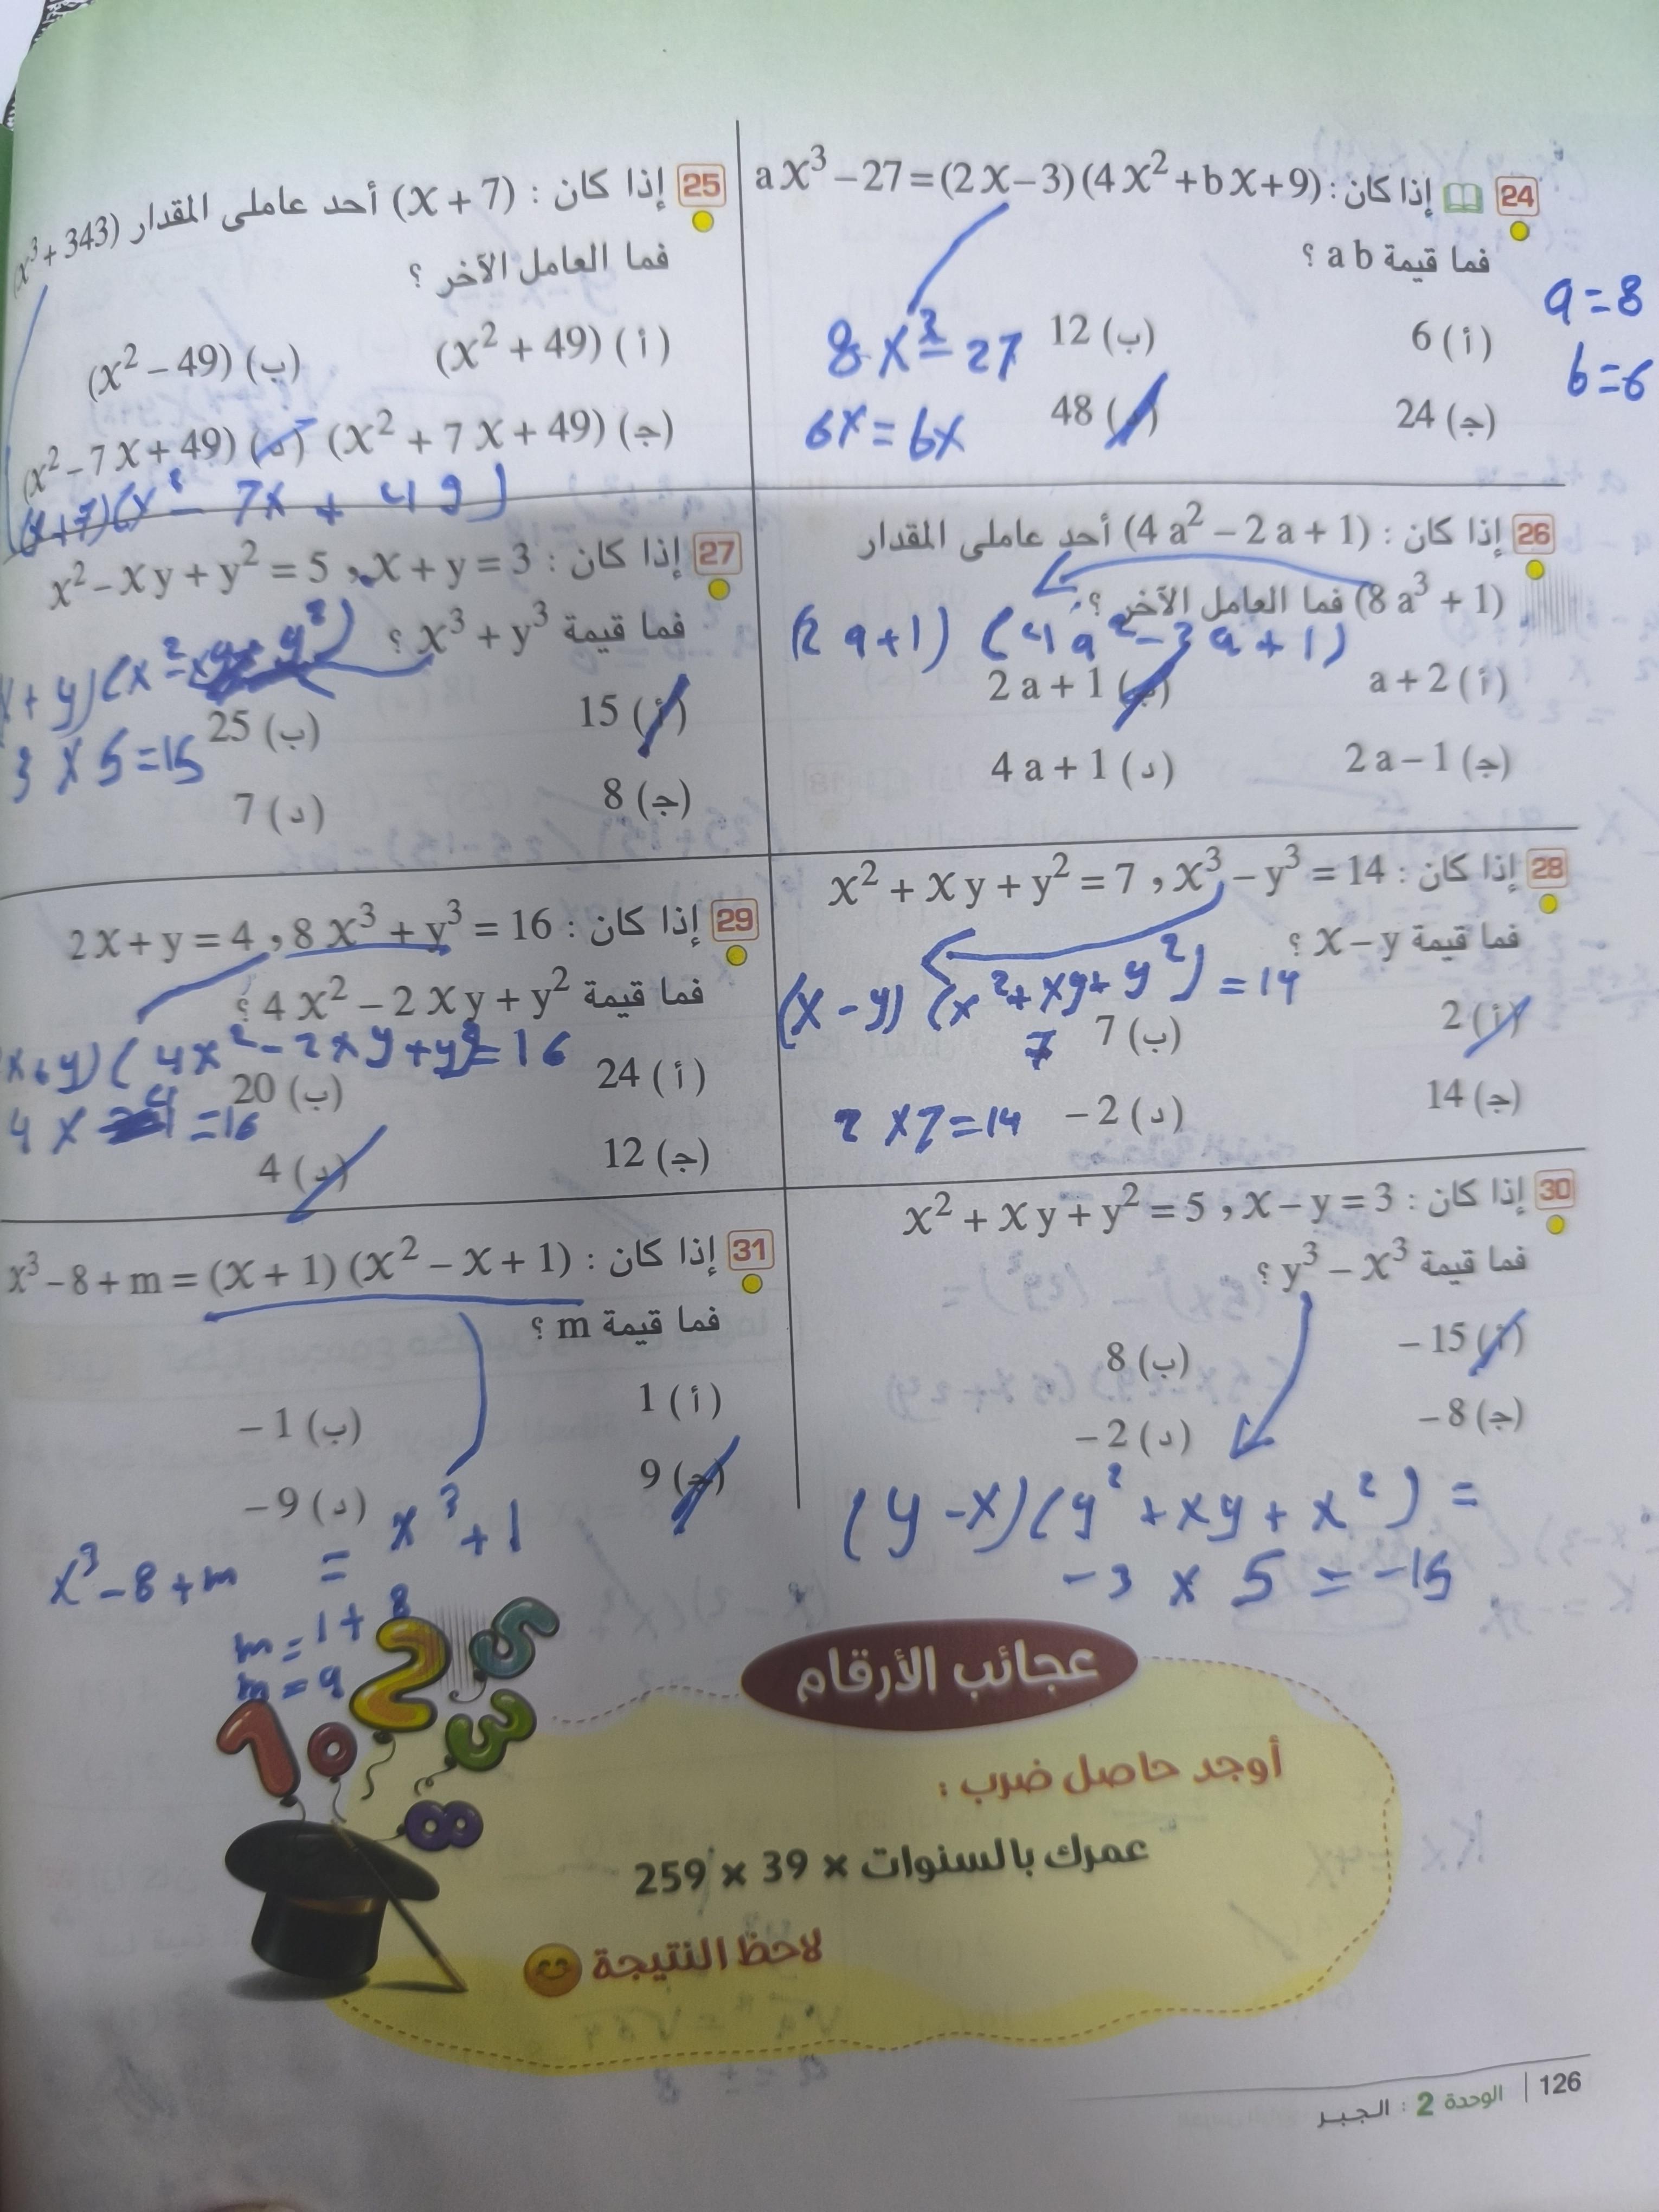 24 إذا كان : aX³ – 27 = (2X – 3)(4X² + bX + 9)
فما قيمة ab ؟
(أ) 6
(ب) 12
(ج) 24
48
a = 8
b = 6
8x³ – 27
6x = 6x
25 إذا كان : (X + 7) أحد عاملى المقدار (x³ + 343)
فما العامل الآخر ؟
(أ) (X² + 49)
(ب) (X² – 49)
(ج) (X² + 7X + 49)
(د) (X² – 7X + 49)
(x+7)(x² – 7x + 49)
26 إذا كان : (4a² – 2a + 1) أحد عاملى المقدار
(8a³ + 1) فما العامل الآخر ؟
(2a+1) (4a² – 2a + 1)
(أ) a + 2
(ب) 2a + 1
(ج) 2a – 1
(د) 4a + 1
27 إذا كان : X + y = 3 ، X² – Xy + y² = 5
فما قيمة X³ + y³ ؟
+ y)(x² – xy + y²)
(أ) 15
(ب) 25
3 x 5 = 15
(ج) 8
(د) 7
28 إذا كان : X³ – y³ = 14 ، X² + Xy + y² = 7
فما قيمة X – y ؟
(x – y) (x² + xy + y²) = 14
7
(أ) 2
(ب) 7
(ج) 14
(د) – 2
2 x 7 = 14
29 إذا كان : 8X³ + y³ = 16 ، 2X + y = 4
فما قيمة 4X² – 2Xy + y² ؟
x + y)(4x² – 2xy + y² = 16
(أ) 24
(ب) 20
4 x 4 = 16
(ج) 12
(د) 4
30 إذا كان : X – y = 3 ، X² + Xy + y² = 5
فما قيمة y³ – X³ ؟
(أ) – 15
(ب) 8
(ج) – 8
(د) – 2
(y – x)(y² + xy + x²) =
– 3 x 5 = – 15
31 إذا كان : x³ – 8 + m = (X + 1)(X² – X + 1)
فما قيمة m ؟
(أ) 1
(ب) – 1
(ج) 9
(د) – 9
x³ – 8 + m = x³ + 1
m = 1 + 8
m = 9
عجائب الأرقام
أوجد حاصل ضرب :
عمرك بالسنوات × 39 × 259
لاحظ النتيجة
126 | الوحدة 2 : الجبر